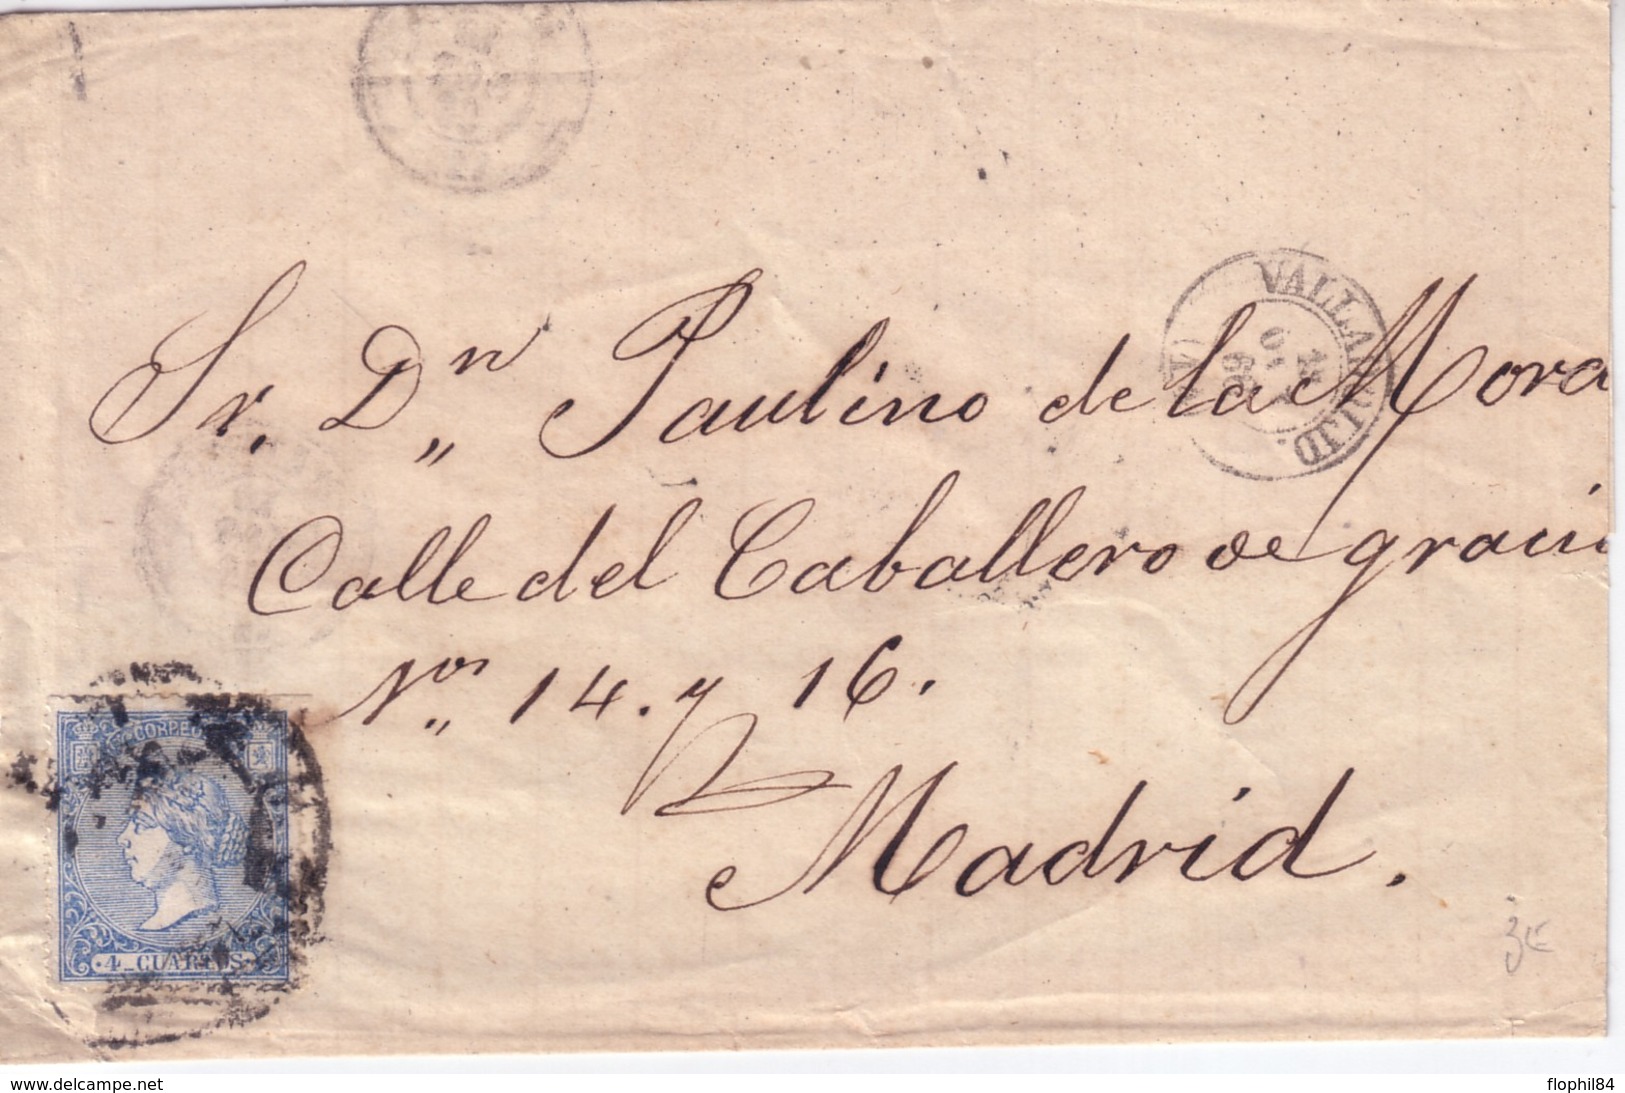 VALLADOLID.
18
66
Sr. Dn. Paulino de la Mora
Calle del Caballero de graci
Nos. 14. y 16.
Madrid.
CORREOS
4 CUARTOS
3€
www.delcampe.net
flophil84